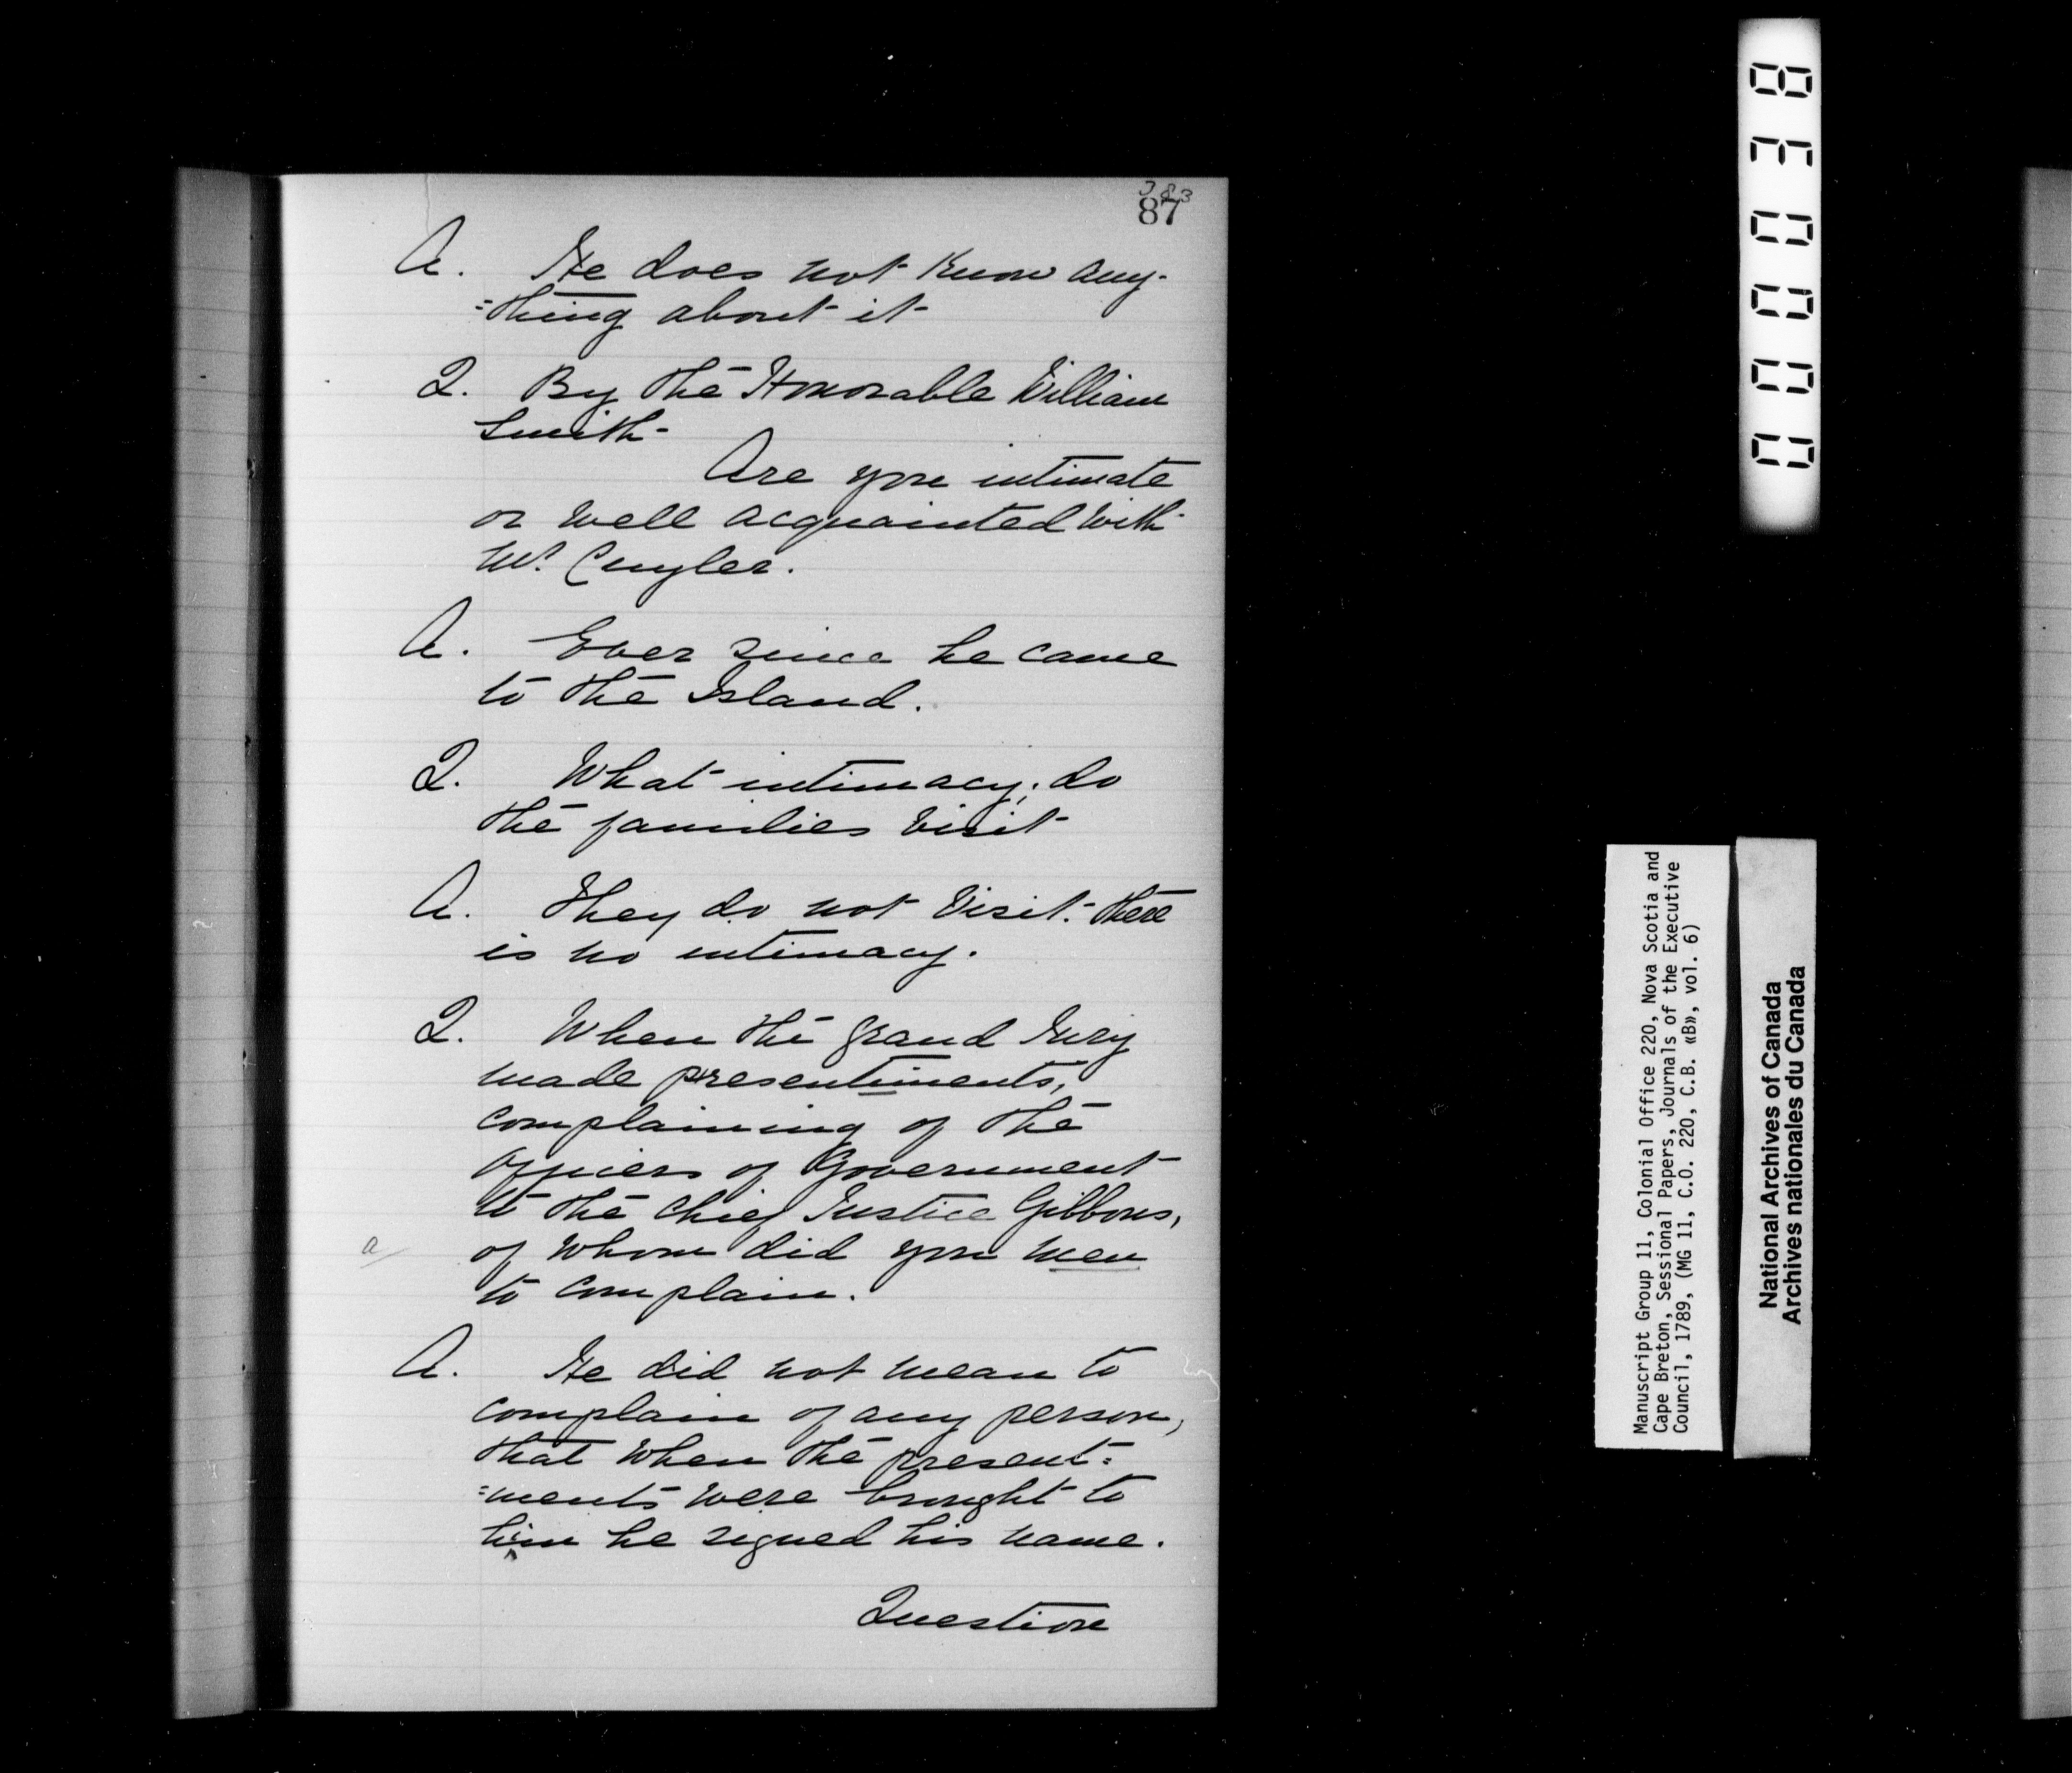 383
87
A. He does not know any-
=thing about it
Q. By the Honorable William
Smith-
Are you intimate
or well acquainted with
Mr. Cuyler.
A. Ever since he came
to the Island.
Q. What intimacy; do
the families visit
A. They do not visit. there
is no intimacy.
Q. When the Grand Jury
made presentiments,
complaining of the
Officers of Government
to the Chief Justice Gibbons,
a/ of whom did you men
to complain.
A. He did not mean to
complain of any person,
that when the present=
=ments were brought to
him he signed his name.
Question
00000378
Manuscript Group 11, Colonial Office 220, Nova Scotia and
Cape Breton, Sessional Papers, Journals of the Executive
Council, 1789, (MG 11, C.O. 220, C.B. «B», vol. 6)
National Archives of Canada
Archives nationales du Canada